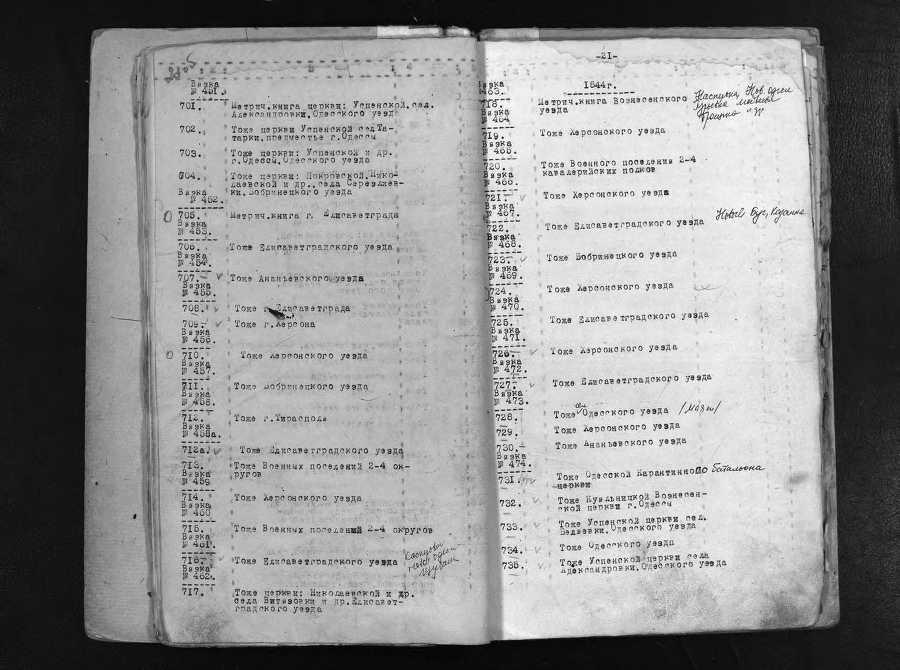 Вязка
№ 451.
701. Метрич.книга церкви: Успенской.сел.
Александровки,Одесского уезда
702. Тоже церкви Успенской сел Та-
тарки,предместье г.Одессы
703. Тоже церкви: Успенской и др.
г.Одессы.Одесского уезда
704. Тоже церкви: Покровской.Нико-
лаевской и др., села
Вязка ки.Бобринецкого уезда
№ 452.
705. Метрич.книга г. Елисаветграда
Вязка
№ 453.
706. Тоже Елисаветградского уезда
Вязка
№ 454.
707. Тоже Ананьевского уезда
Вязка
№ 455.
708. Тоже г.Елисаветграда
709. Тоже г.Херсона
Вязка
№ 456.
710. Тоже Херсонского уезда
Вязка
№ 457.
711. Тоже Бобринецкого уезда
Вязка
№ 458.
712. Тоже г.Тирасполя
Вязка
№ 458а.
712а. Тоже Елисаветградского уезда
713. Тоже Военных поселений 2-4 ок-
Вязка ругов
№ 459
714. Тоже Херсонского уезда
Вязка
№ 460
715. Тоже Военных поселений 2-4 округов
Вязка
№ 461.
716. Тоже Елисаветградского уезда
Вязка
№ 462.
717. Тоже церкви: Николаевской и др.
села Витязовки и др.Елисавет-
градского уезда
-21-
Вязка 1844г.
№ 463.
718. Метрич.книга Вознесенского
Вязка уезда
№ 464
719. Тоже Херсонского уезда
Вязка
№ 465.
720. Тоже Военного поселения 2-4
Вязка кавалерийских полков
№ 466.
721. Тоже Херсонского уезда
Вязка
№ 467.
722. Тоже Елисаветградского уезда Новый Буг, Казанка
Вязка
№ 468.
723. Тоже Бобринецкого уезда
Вязка
№ 469.
724. Тоже Херсонского уезда
Вязка
№ 470.
725. Тоже Елисаветградского уезда
Вязка
№ 471.
726. Тоже Херсонского уезда
Вязка
№ 472.
727. Тоже Елисаветградского уезда
Вязка
№ 473.
728. Тоже Одесского уезда
729. Тоже Херсонского уезда
730. Тоже Ананьевского уезда
Вязка
№ 474.
731. Тоже Одесской Карантинного батальона
церкви
732. Тоже Куяльницкой Вознесен-
ской церкви г.Одессы
733. Тоже Успенской церкви сел.
Беляевки.Одесского уезда
734. Тоже Одесского уезда
735. Тоже Успенской церкви села
Александровки.Одесского уезда